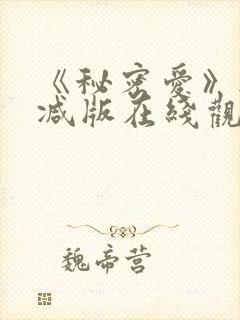 《秘密爱》
减版在线觀
魏帝营